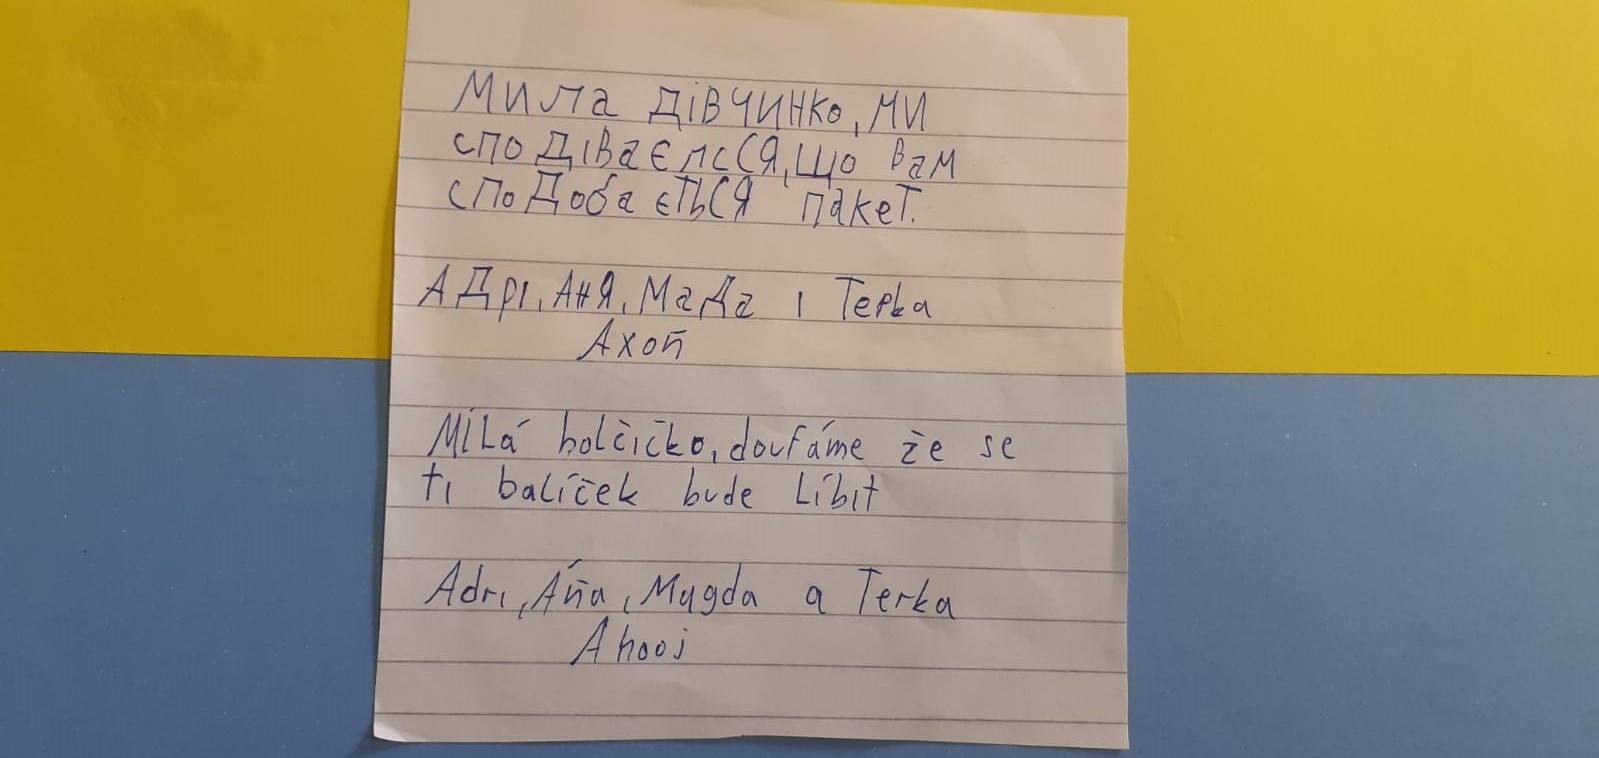 Мила дівчинко, ми
сподіваєлсся, що вам
сподобається пакет.
Адрі, Аня, Мада і Терka
Ахой
Milá holčičko, doufáme že se
ti balíček bude líbit
Adri, Áňa, Magda a Terka
Ahooj